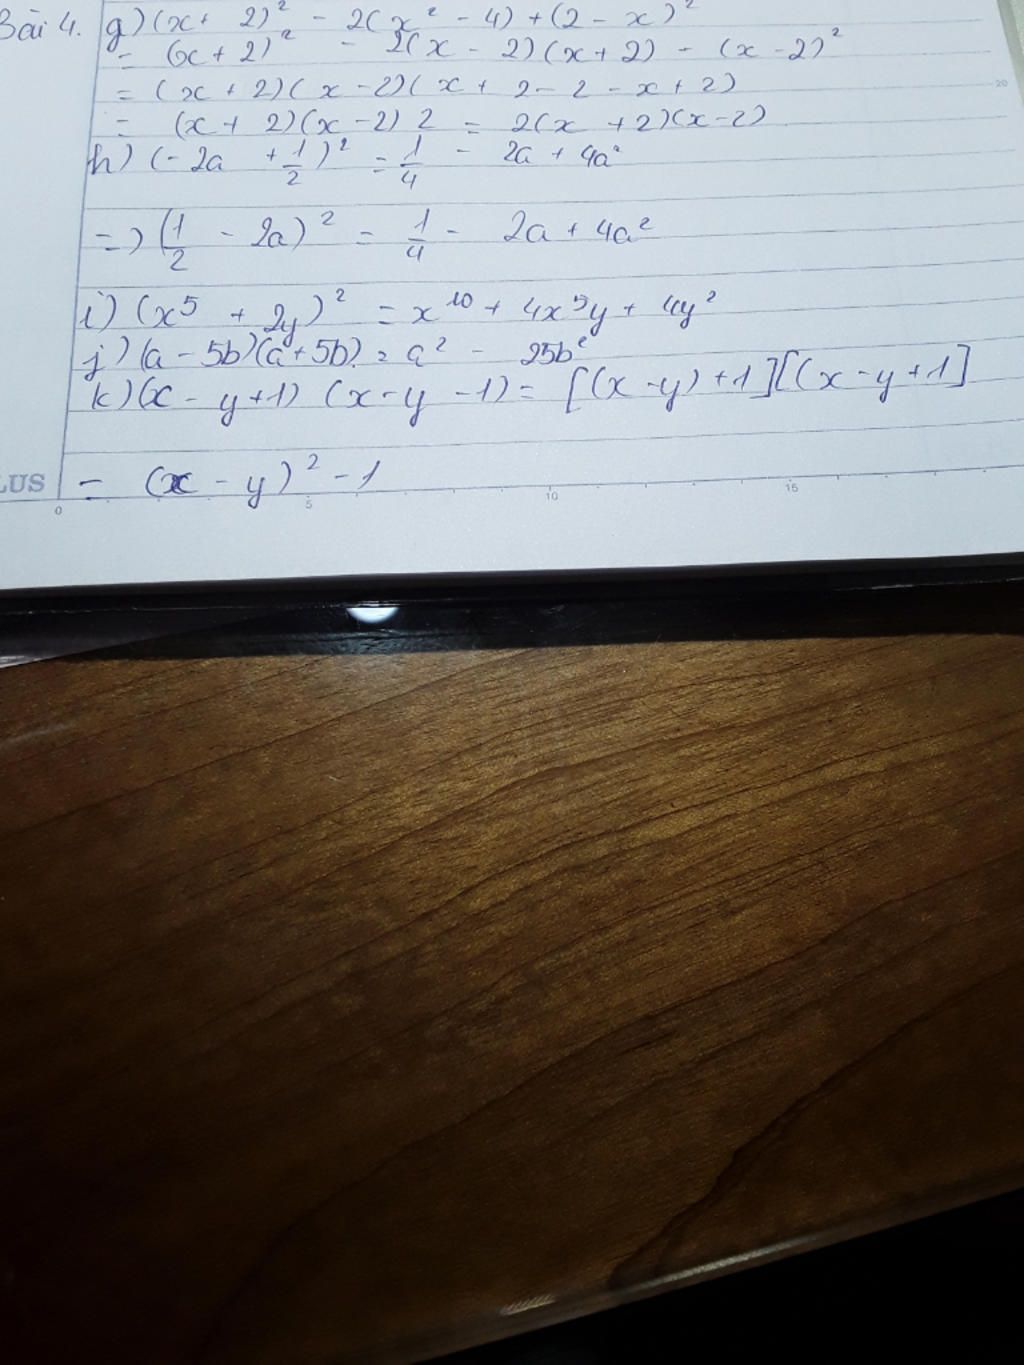 Bài 4. g) (x + 2)² - 2(x² - 4) + (2 - x)²
= (x + 2)² - 2(x - 2)(x + 2) - (x - 2)²
= (x + 2)(x - 2)(x + 2 - 2 - x + 2)
20
= (x + 2)(x - 2) 2 = 2(x + 2)(x - 2)
h) (-2a + 1/2)² = 1/4 - 2a + 4a²
=> (1/2 - 2a)² = 1/4 - 2a + 4a²
i) (x⁵ + 2y)² = x¹⁰ + 4x⁵y + 4y²
j) (a - 5b)(a + 5b) = a² - 25b²
k) (x - y + 1) (x - y - 1) = [(x - y) + 1][(x - y + 1]
LUS = (x - y)² - 1
0 5 10 15